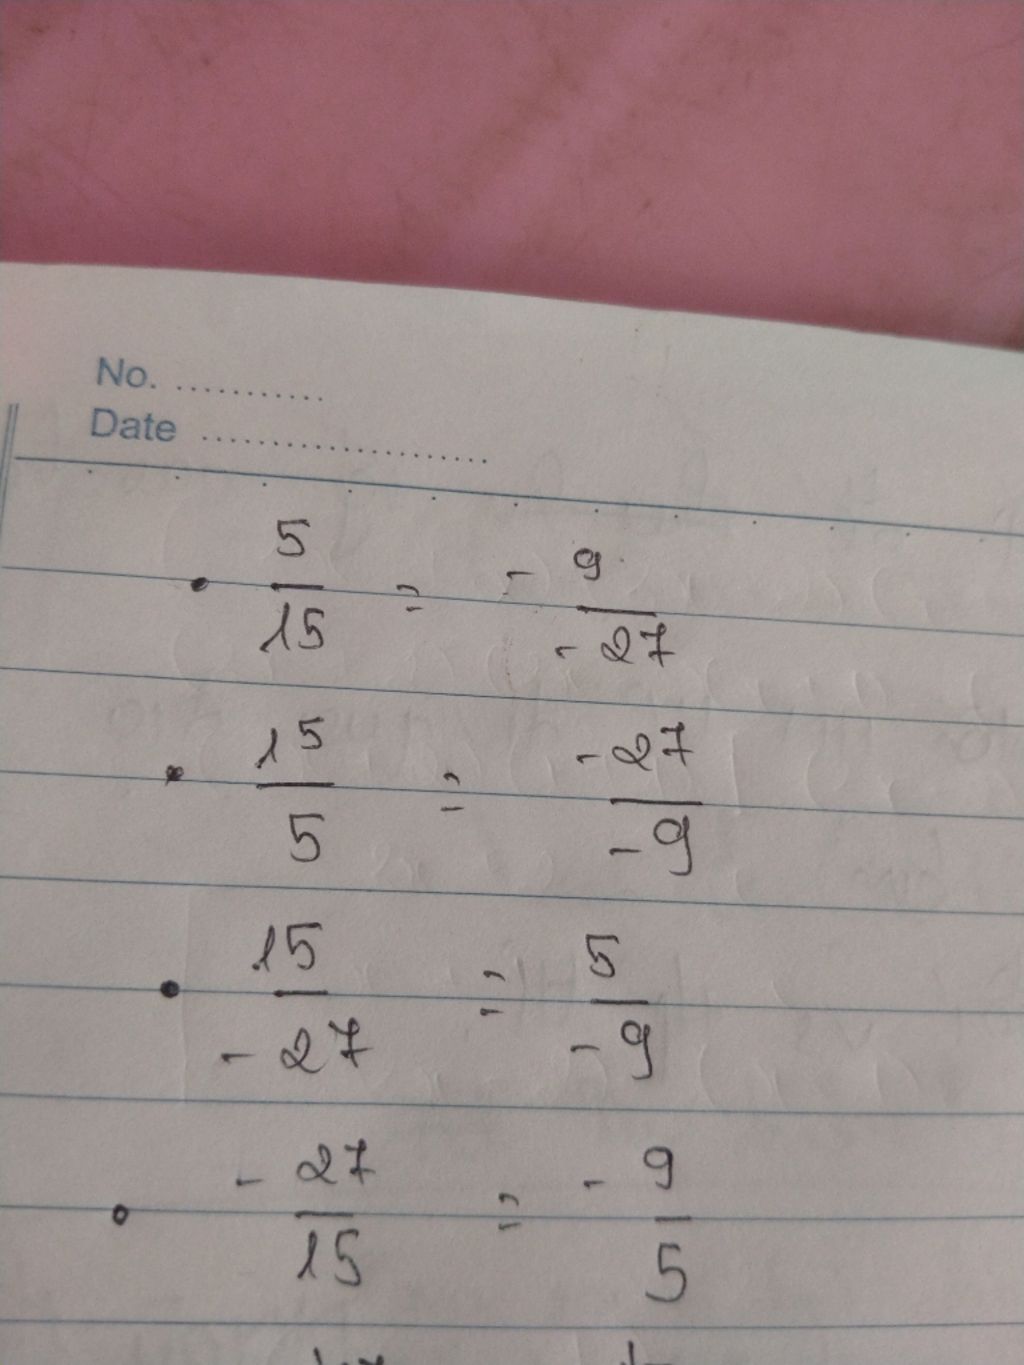 No. ...........
Date ....................
• 5/15 = -9/-27
• 15/5 = -27/-9
• 15/-27 = 5/-9
• -27/15 = -9/5